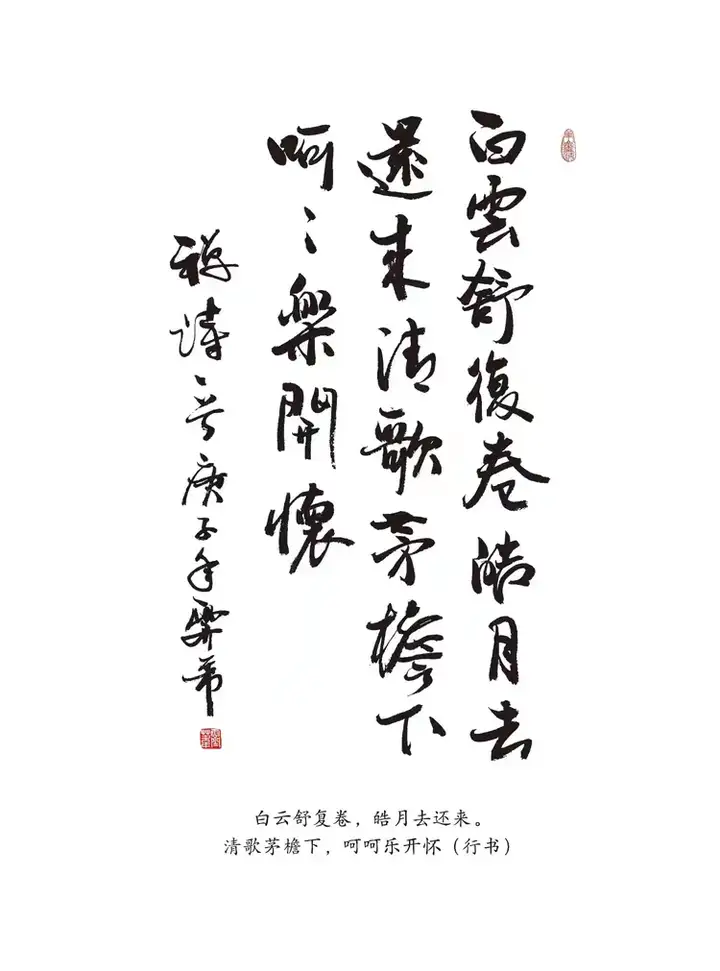 白雲舒復卷皓月去
還來清歌茅檐下
呵〻樂開懷
禪詩一首庚子年霽帚
白云舒复卷，皓月去还来。
清歌茅檐下，呵呵乐开怀（行书）